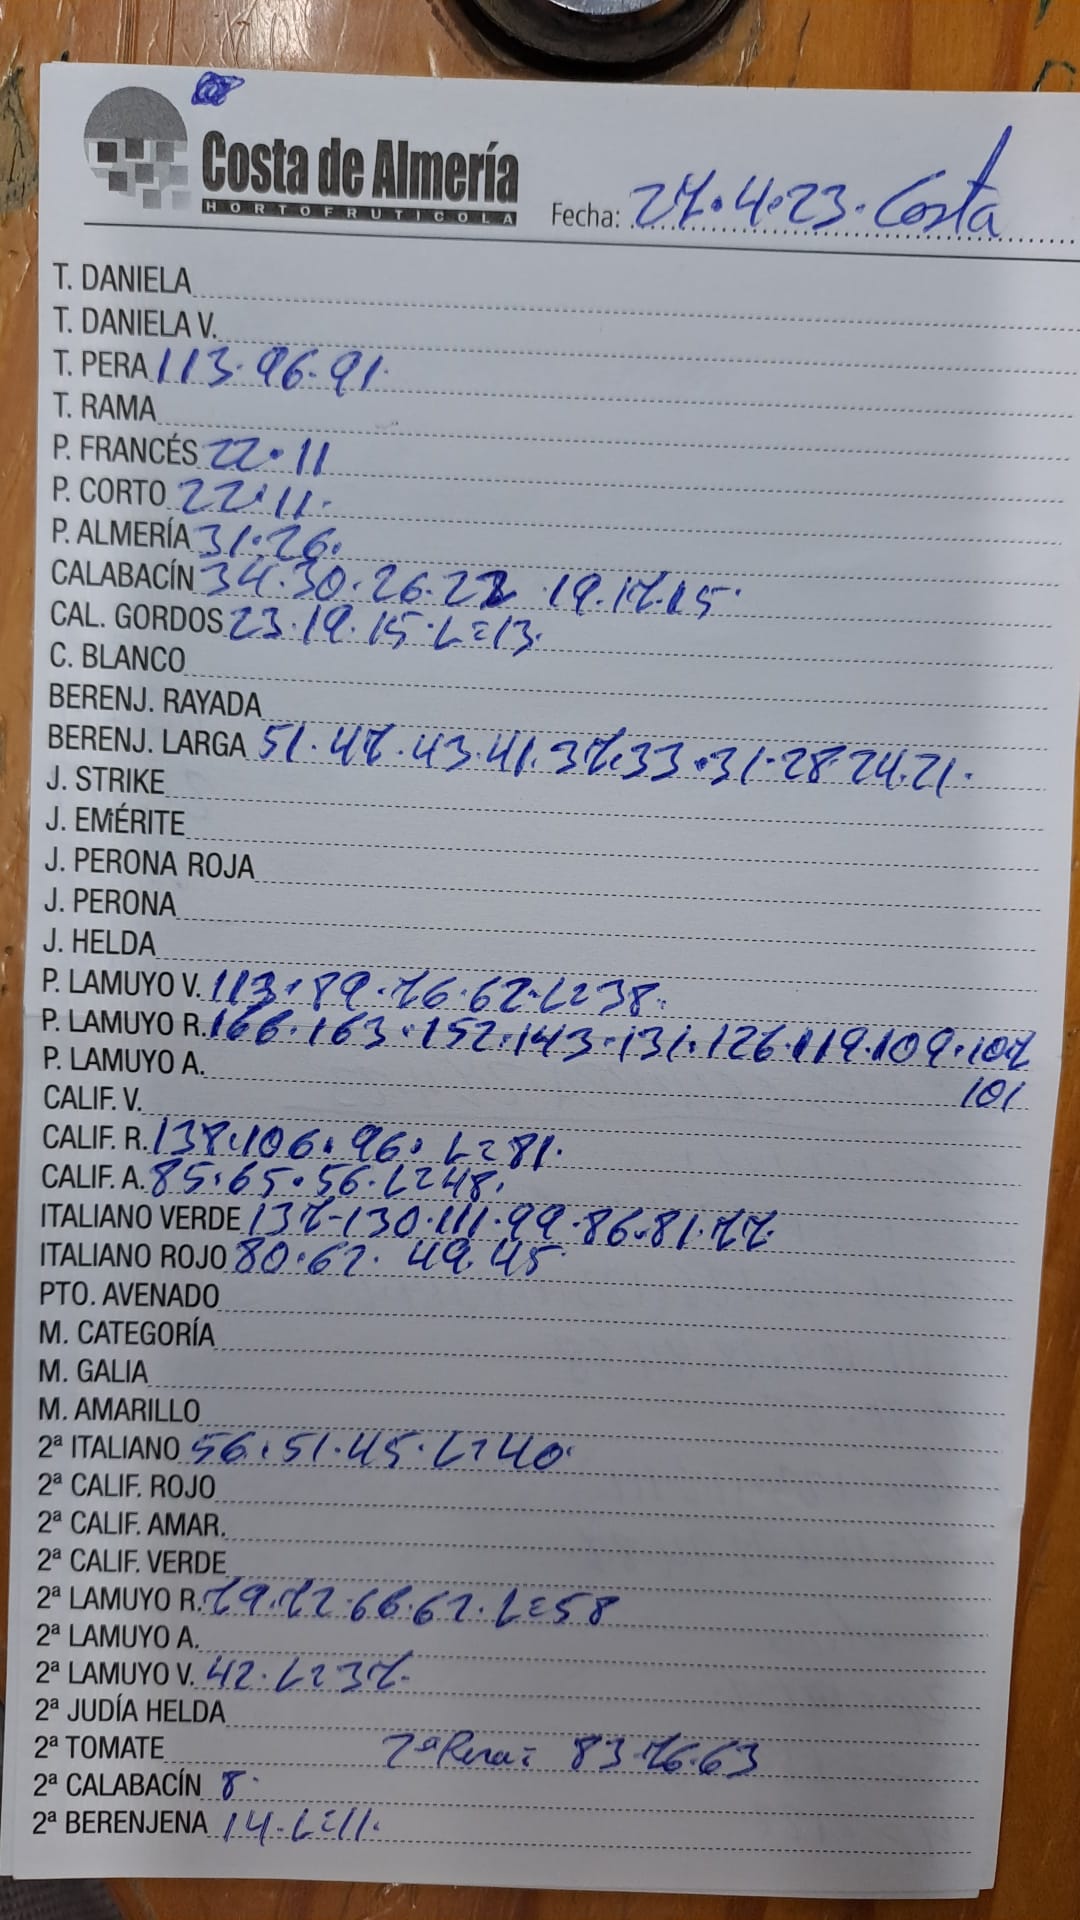 Costa de Almería
HORTOFRUTICOLA
Fecha: 27.4.23. Costa
T. DANIELA
T. DANIELA V.
T. PERA 113.96.91.
T. RAMA
P. FRANCÉS 22.11
P. CORTO 22.11.
P. ALMERÍA 31.26.
CALABACÍN 34.30.26.22 19.17.15.
CAL. GORDOS 23.19.15.L=13.
C. BLANCO
BERENJ. RAYADA
BERENJ. LARGA 51.47.43.41.37.33.31.28.24.21.
J. STRIKE
J. EMÉRITE
J. PERONA ROJA
J. PERONA
J. HELDA
P. LAMUYO V. 113.89.76.62.L=38.
P. LAMUYO R. 166.163.152.143.131.126.119.109.107
P. LAMUYO A. 101
CALIF. V.
CALIF. R. 138.106.96.L=81.
CALIF. A. 85.65.56.L=48.
ITALIANO VERDE 137-130.111.99.86.81.77.
ITALIANO ROJO 80.62.49.45
PTO. AVENADO
M. CATEGORÍA
M. GALIA
M. AMARILLO
2ª ITALIANO 56.51.45.L=40.
2ª CALIF. ROJO
2ª CALIF. AMAR.
2ª CALIF. VERDE
2ª LAMUYO R. 79.72.66.62.L=58
2ª LAMUYO A.
2ª LAMUYO V. 42.L=37.
2ª JUDÍA HELDA
2ª TOMATE 2ª Pera= 83.76.63
2ª CALABACÍN 8.
2ª BERENJENA 14.L=11.